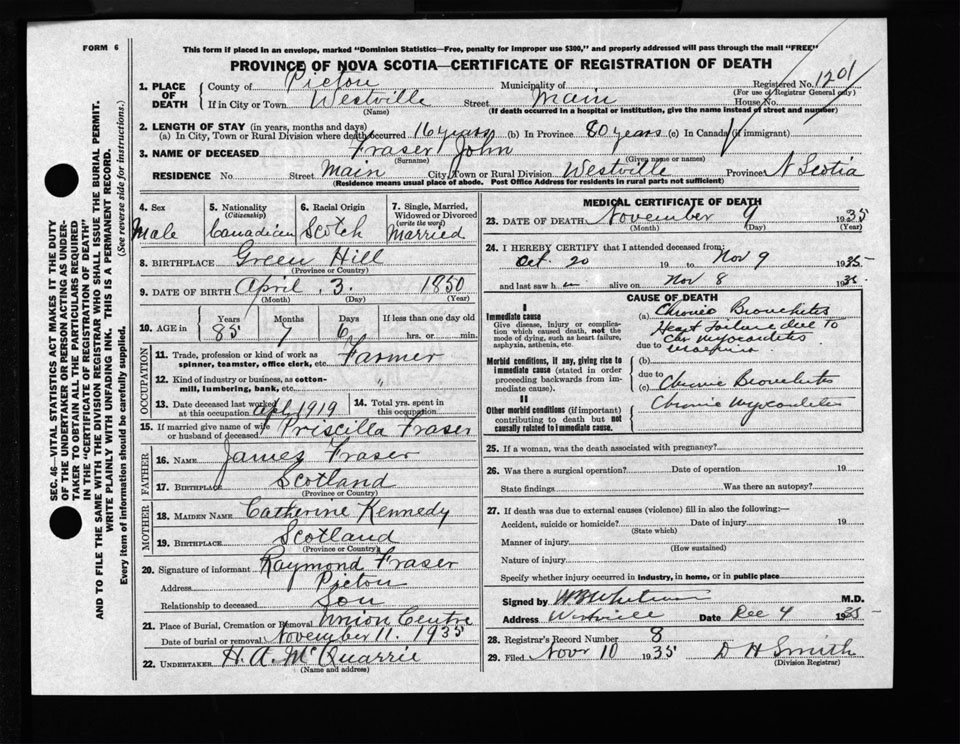 FORM 6
This form if placed in an envelope, marked "Dominion Statistics—Free, penalty for improper use $300," and properly addressed will pass through the mail "FREE"
PROVINCE OF NOVA SCOTIA—CERTIFICATE OF REGISTRATION OF DEATH
1. PLACE OF DEATH
County of Pictou Municipality of Registered No. 1201
(For use of Registrar General only)
If in City or Town Westville Street Main House No.
(Name) (If death occurred in a hospital or institution, give the name instead of street and number)
2. LENGTH OF STAY (in years, months and days)
(a) In City, Town or Rural Division where death occurred 16 years (b) In Province 80 years (c) In Canada (if immigrant)
3. NAME OF DECEASED Fraser John
(Surname) (Given name or names)
RESIDENCE No Street Main City, Town or Rural Division Westville Province N Scotia
(Residence means usual place of abode. Post Office Address for residents in rural parts not sufficient)
4. Sex
Male
5. Nationality
(Citizenship)
Canadian
6. Racial Origin
Scotch
7. Single, Married, Widowed or Divorced
(write the word)
Married
8. BIRTHPLACE Green Hill
(Province or Country)
9. DATE OF BIRTH April 3 1850
(Month) (Day) (Year)
10. AGE in Years Months Days If less than one day old
85 7 6 hrs. or min.
OCCUPATION
11. Trade, profession or kind of work as spinner, teamster, office clerk, etc. Farmer
12. Kind of industry or business, as cotton-mill, lumbering, bank, etc. "
13. Date deceased last worked at this occupation Apl 1919
14. Total yrs. spent in this occupation
15. If married give name of wife or husband of deceased Priscilla Fraser
FATHER
16. NAME James Fraser
17. BIRTHPLACE Scotland
(Province or Country)
MOTHER
18. MAIDEN NAME Catherine Kennedy
19. BIRTHPLACE Scotland
(Province or Country)
20. Signature of informant Raymond Fraser
Address Pictou
Relationship to deceased Son
21. Place of Burial, Cremation or Removal Union Centre
Date of burial or removal November 11. 1935
22. UNDERTAKER H. A. McQuarrie
(Name and address)
MEDICAL CERTIFICATE OF DEATH
23. DATE OF DEATH November 9 1935
(Month) (Day) (Year)
24. I HEREBY CERTIFY that I attended deceased from:
Oct. 20 19 to Nov 9 1935
and last saw h im alive on Nov 8 1935.
CAUSE OF DEATH
I
Immediate cause
Give disease, injury or complication which caused death, not the mode of dying, such as heart failure, asphyxia, asthenia, etc.
(a) Chronic Bronchitis
Heart Failure due to
due to Chr Myocarditis
Morbid conditions, if any, giving rise to immediate cause (stated in order proceeding backwards from immediate cause).
(b)
due to
(c) Chronic Bronchitis
II
Other morbid conditions (if important) contributing to death but not causally related to immediate cause.
Chronic Myocarditis
25. If a woman, was the death associated with pregnancy?
26. Was there a surgical operation? Date of operation 19
State findings Was there an autopsy?
27. If death was due to external causes (violence) fill in also the following:—
Accident, suicide or homicide? Date of injury 19
(State which)
Manner of injury
(How sustained)
Nature of injury
Specify whether injury occurred in industry, in home, or in public place
Signed by M.D.
Address Westville Date Dec 4 1935
28. Registrar's Record Number 8
29. Filed Novr 10 1935 D H Smith
(Division Registrar)
SEC. 46—VITAL STATISTICS ACT MAKES IT THE DUTY
OF THE UNDERTAKER OR PERSON ACTING AS UNDER-
TAKER TO OBTAIN ALL THE PARTICULARS REQUIRED
IN THE "CERTIFICATE OF REGISTRATION OF DEATH"
AND TO FILE THE SAME WITH THE DIVISION REGISTRAR WHO SHALL ISSUE THE BURIAL PERMIT.
WRITE PLAINLY WITH UNFADING INK. THIS IS A PERMANENT RECORD.
Every item of information should be carefully supplied. (See reverse side for instructions.)